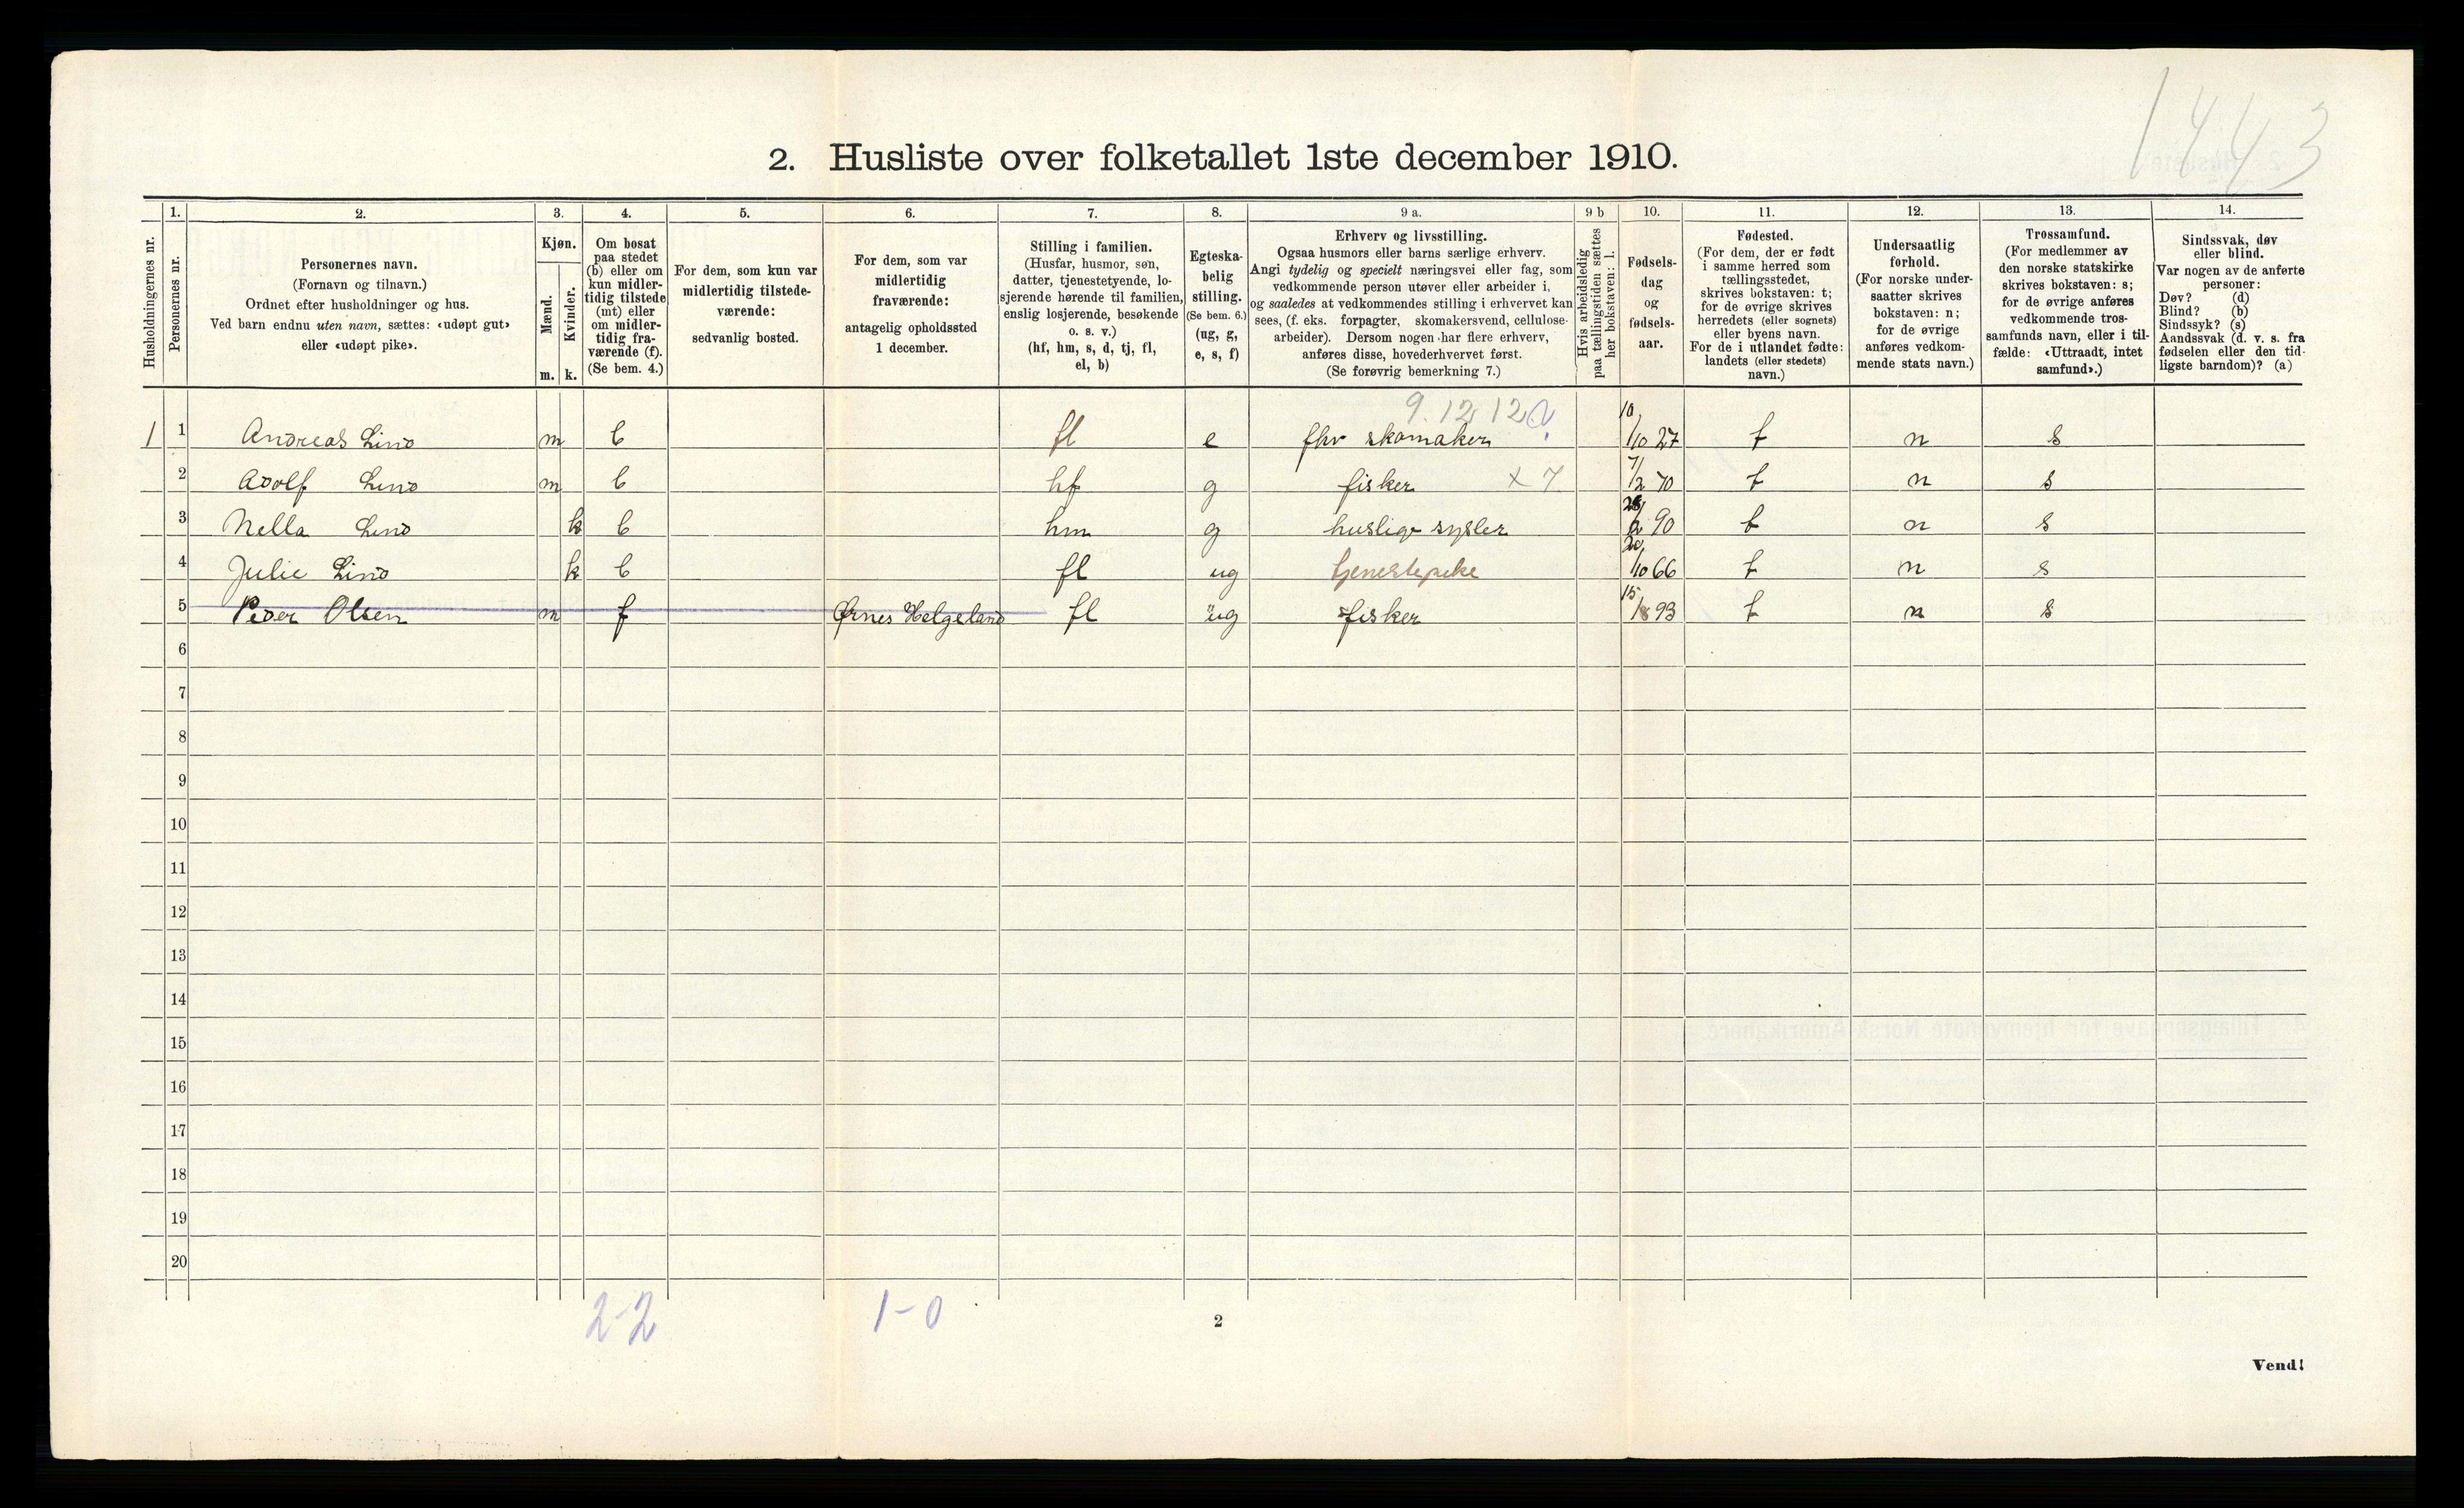 1443
2. Husliste over folketallet 1ste december 1910.
Husholdningernes nr.
1. Personernes nr.
2. Personernes navn. (Fornavn og tilnavn.) Ordnet efter husholdninger og hus. Ved barn endnu uten navn, sættes: «udøpt gut» eller «udøpt pike».
3. Kjøn. Mænd. m. Kvinder. k.
4. Om bosat paa stedet (b) eller om kun midler-tidig tilstede (mt) eller om midler-tidig fra-værende (f). (Se bem. 4.)
5. For dem, som kun var midlertidig tilstede-værende: sedvanlig bosted.
6. For dem, som var midlertidig fraværende: antagelig opholdssted 1 december.
7. Stilling i familien. (Husfar, husmor, søn, datter, tjenestetyende, lo-sjerende hørende til familien, enslig losjerende, besøkende o. s. v.) (hf, hm, s, d, tj, fl, el, b)
8. Egteska-belig stilling. (Se bem. 6.) (ug, g, e, s, f)
9 a. Erhverv og livsstilling. Ogsaa husmors eller barns særlige erhverv. Angi tydelig og specielt næringsvei eller fag, som vedkommende person utøver eller arbeider i, og saaledes at vedkommendes stilling i erhvervet kan sees, (f. eks. forpagter, skomakersvend, cellulose-arbeider). Dersom nogen har flere erhverv, anføres disse, hovederhvervet først. (Se forøvrig bemerkning 7.)
9 b Hvis arbeidsledig paa tællingstiden sættes her bokstaven: l.
10. Fødsels-dag og fødsels-aar.
11. Fødested. (For dem, der er født i samme herred som tællingsstedet, skrives bokstaven: t; for de øvrige skrives herredets (eller sognets) eller byens navn. For de i utlandet fødte: landets (eller stedets) navn.)
12. Undersaatlig forhold. (For norske under-saatter skrives bokstaven: n; for de øvrige anføres vedkom-mende stats navn.)
13. Trossamfund. (For medlemmer av den norske statskirke skrives bokstaven: s; for de øvrige anføres vedkommende tros-samfunds navn, eller i til-fælde: «Uttraadt, intet samfund».)
14. Sindssvak, døv eller blind. Var nogen av de anførte personer: Døv? (d) Blind? (b) Sindssyk? (s) Aandssvak (d. v. s. fra fødselen eller den tid-ligste barndom)? (a)
9.12 12
1 1 Andreas Lind m b fl e fhv skomaker 10/10 27 t n s
2 Adolf Lind m b hf g fisker x 7 7/2 70 t n s
3 Nella Lind k b hm g huslige sysler 90 t n s
4 Julie Lind k b fl ug tjenestepike 20/10 66 t n s
5 Peder Olsen m f Ørnes Helgeland fl ug fisker 15/8 93 t n s
6
7
8
9
10
11
12
13
14
15
16
17
18
19
20
2-2 1-0
2
Vend!